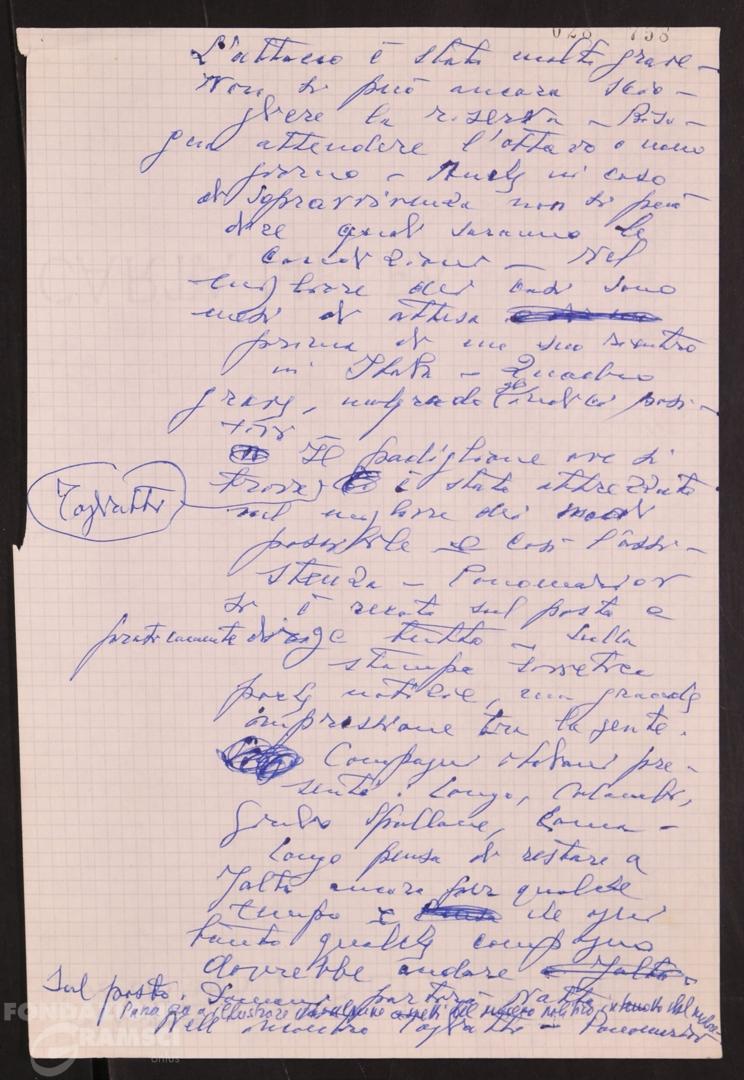 028 758
L'attacco è stato molto grave –
Non si può ancora scio-
gliere la riserva – Biso-
gna attendere l'ottavo o nono
giorno – Anche in caso
di sopravvivenza non si può
dire quali saranno le
condizioni – Nel
migliore dei casi sono
mesi di attesa
prima di un suo rientro
in Italia – Quadro
grave, malgrado gli indici posi-
tivi
Il padiglione ove si
Togliatti
trova è stato attrezzato
nel migliore dei modi
possibile e così l'assi-
stenza – Ponomariov
si è recato sul posto e
praticamente dirige tutto – Sulla
stampa sovietica
poche notizie, ma grande
impressione tra la gente.
Compagni italiani pre-
senti: Longo, Colombi,
Giulio Spallone,
Longo pensa di restare a
Yalta ancora per qualche
tempo e che ogni
tanto qualche compagno
dovrebbe andare a Yalta
sul posto. partirà Natta
illustrare politico,
Nell'incontro Togliatti – Ponomariov
FONDAZIONE
GRAMSCI
onlus